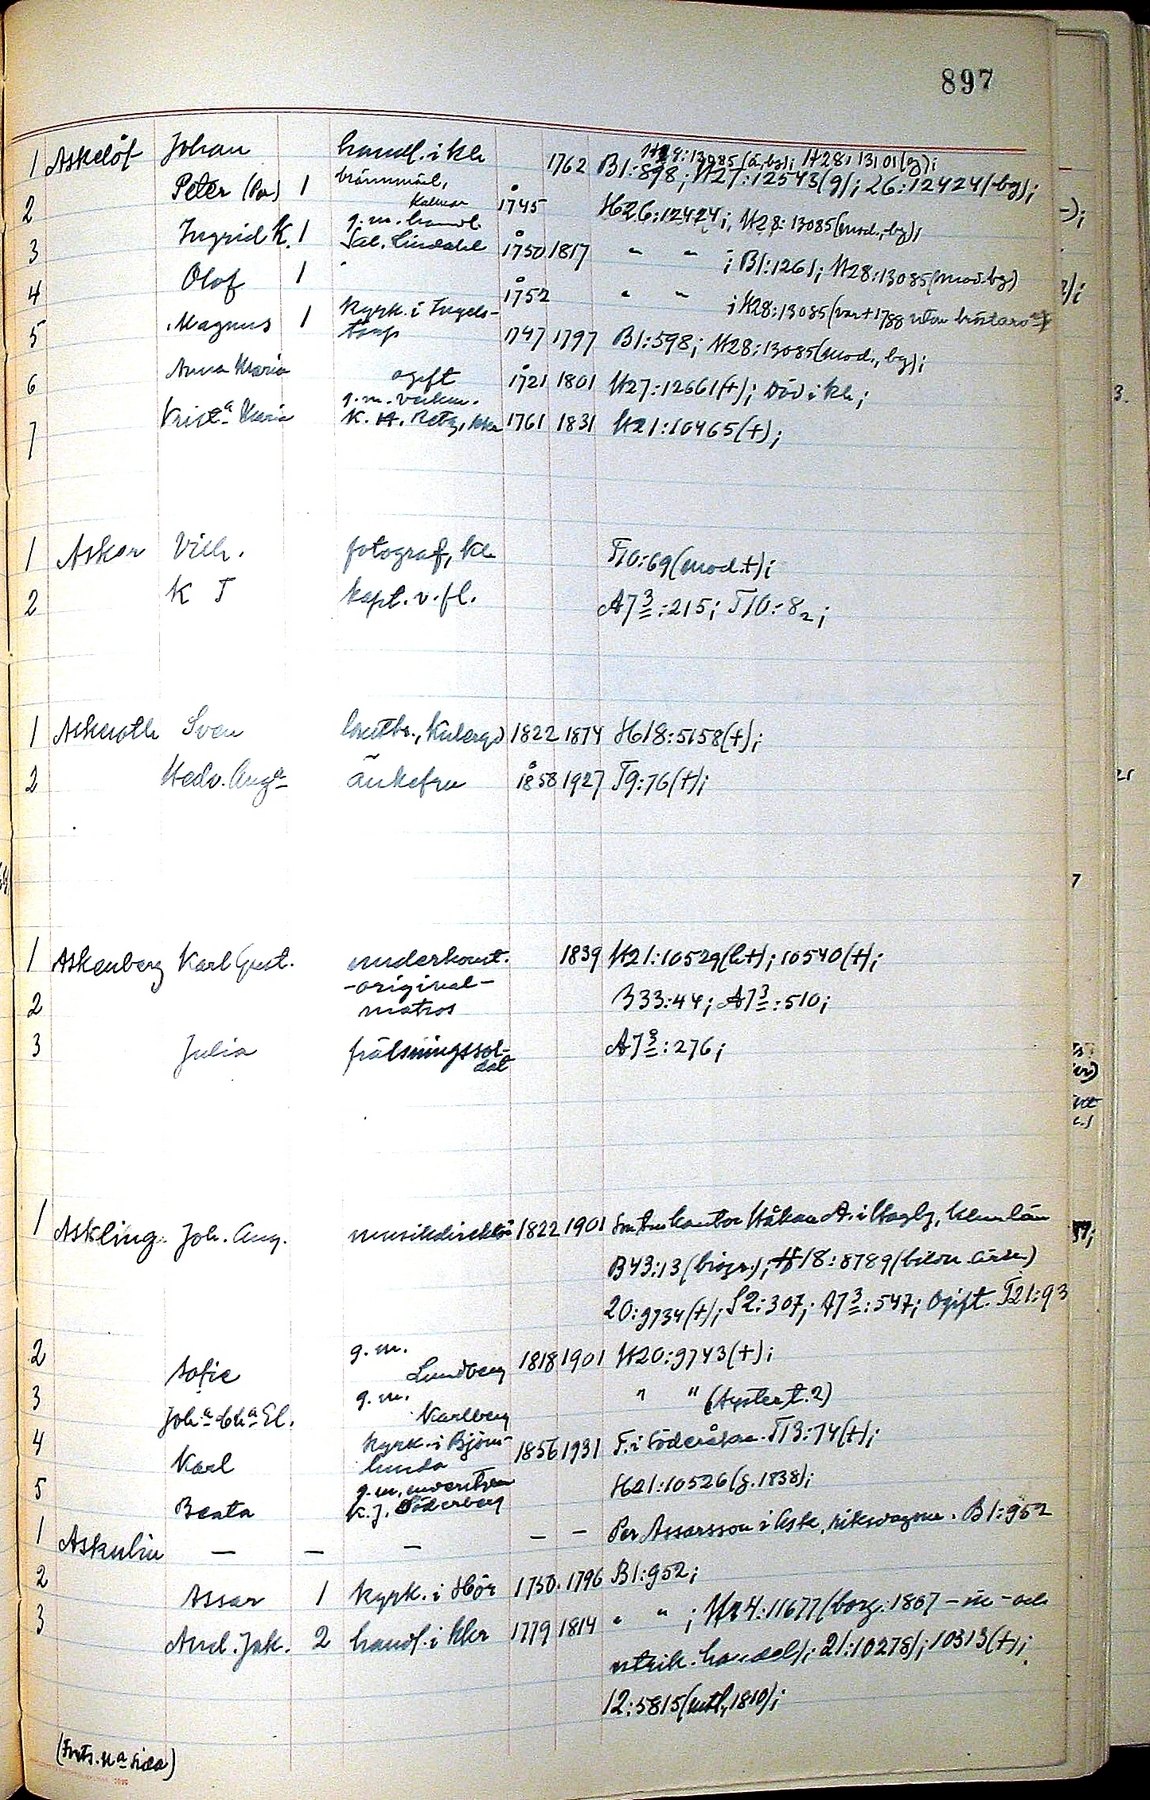 897
H24:13085(ä, bg); H28:13101(g);
1 Askelöf Johan handl. i Klr 1762 B1:898; H27:12543(g); 26:12424(-bg);
2 Peter (Per) 1 Kalmar 1745 H26:12424; H28:13085(mod., bg);
3 Ingrid K. 1 g.m. handl. Sal. Lindahl 1750 1817 " " ; B1:1261; H28:13085(mod. bg)
4 Olof 1 1752 " " ; H28:13085(var +1788 utan bröstarv.)
5 Magnus 1 kyrk. i Ingels-
torp 1747 1797 B1:598; H28:13085(mod., bg);
6 Anna Maria ogift 1721 1801 H27:12661(+); Död i Klr;
7 Krist:a Maria g.m.
K. A. Retz, 1761 1831 H21:10465(+);
1 Asker Vilh. fotograf, Klr T10:69(mod.+);
2 K T kapt. v. fl. A7 3:215; T10:82;
1 Askeroth Sven 1822 1874 H18:5158(+);
2 Hedv. Aug:a änkefru 1858 1927 T9:76(+);
1 Askenberg Karl Gust. underkonst. 1839 H21:10529(h+); 10540(+);
2 -original-
matros B33:44; A7 3:510;
3 Julia frälsningssol-
dat A7 3:276;
1 Askling Joh. Aug. musikdirektör 1822 1901 Son t. kantor Håkan A. i Hagby, Klm län
B43:13(biogr.); H18:8789
20:9734(+); S2:307; A7 3:547; Ogift. T21:93
2 Sofie g.m.
Lundberg 1818 1901 H20:9743(+);
3 Joh:a Ch:a El. g.m.
Karlberg " " (syster t. 2)
4 Karl kyrk. i Björn-
lunda 1856 1931 F. i Söderåkra. T13:74(+);
5 Beata g.m.
K. J. Söderberg H21:10526(g. 1838);
1 Askulin — — — — — Per Assarsson i Ask, riksdagsm. B1:952
2 Assar 1 kyrk. i Hör 1750 1796 B1:952;
3 And. Jak. 2 handl. i Klr 1779 1814 " " ; H24:11677(borg. 1807 – in- och
utrik. handel); 21:10278/; 10313(+);
12:5815(mtl, 1810);
(Forts. n:a sida)